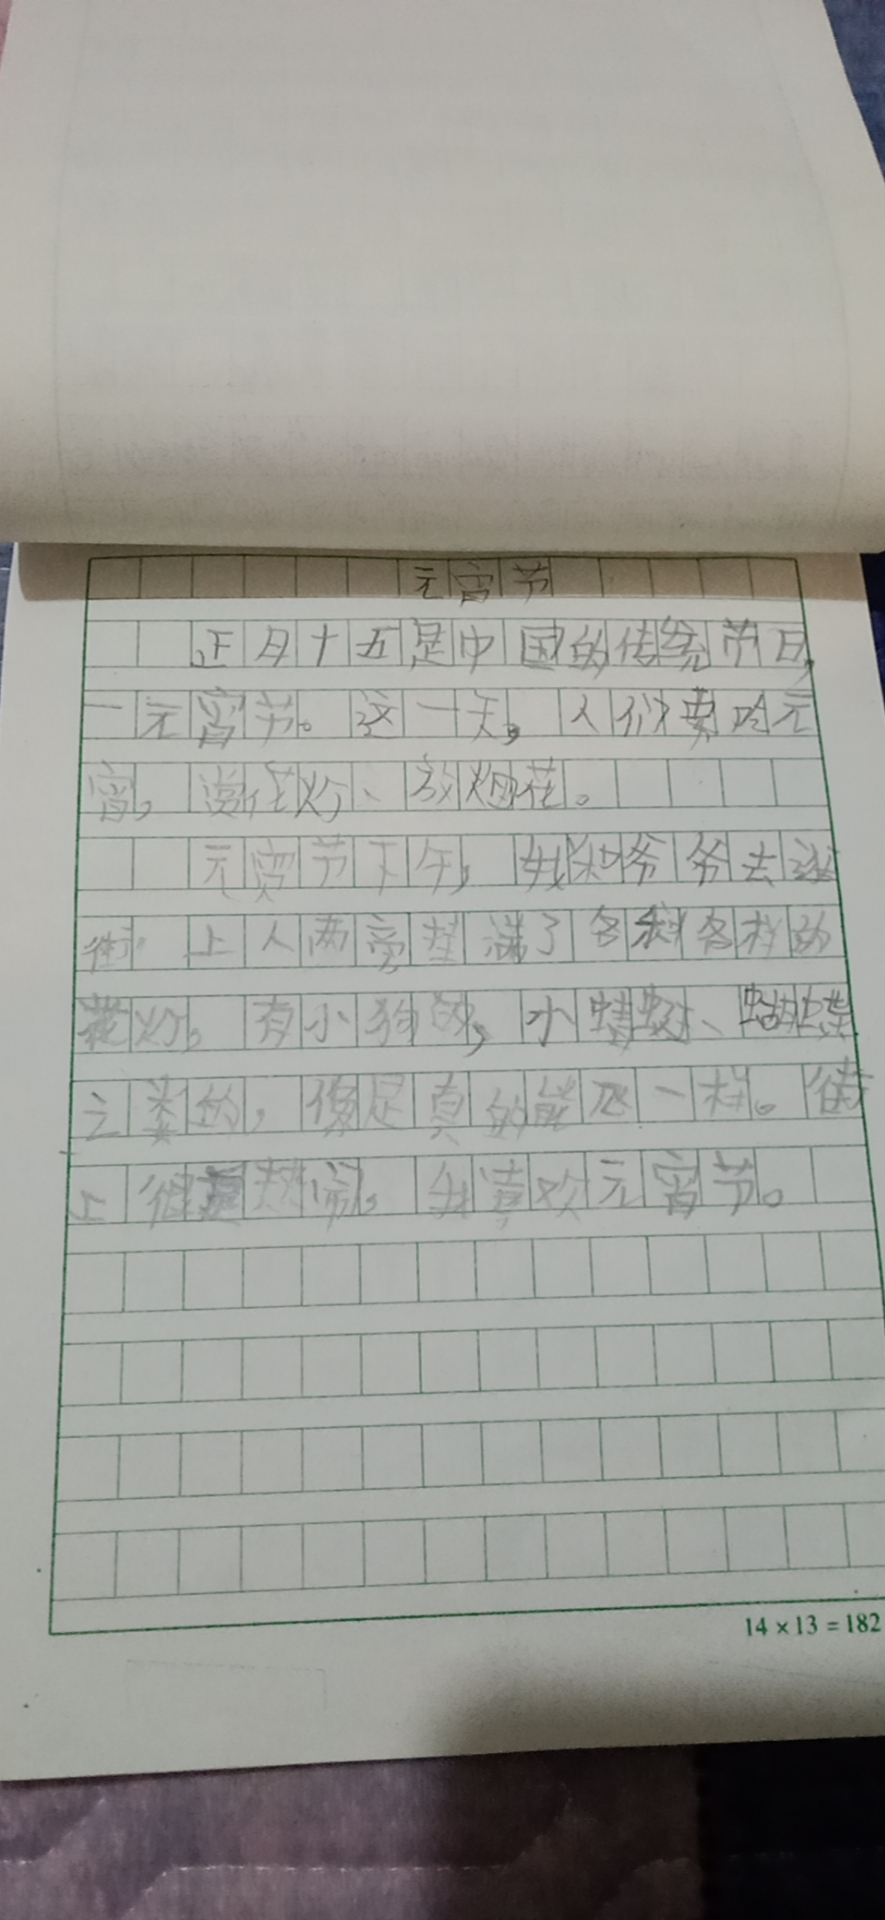 元宵节
正月十五是中国的传统节日,
一元宵节。这一天,人们要吃元
宵,赏花灯、放烟花。
元宵节下午,我和爷爷去逛
街,上人两旁挂满了各种各样的
花灯,有小狗的,小蜻蜓、蝴蝶
之类的,像是真的能飞一样。街
上很热闹,我喜欢元宵节。
14×13=182